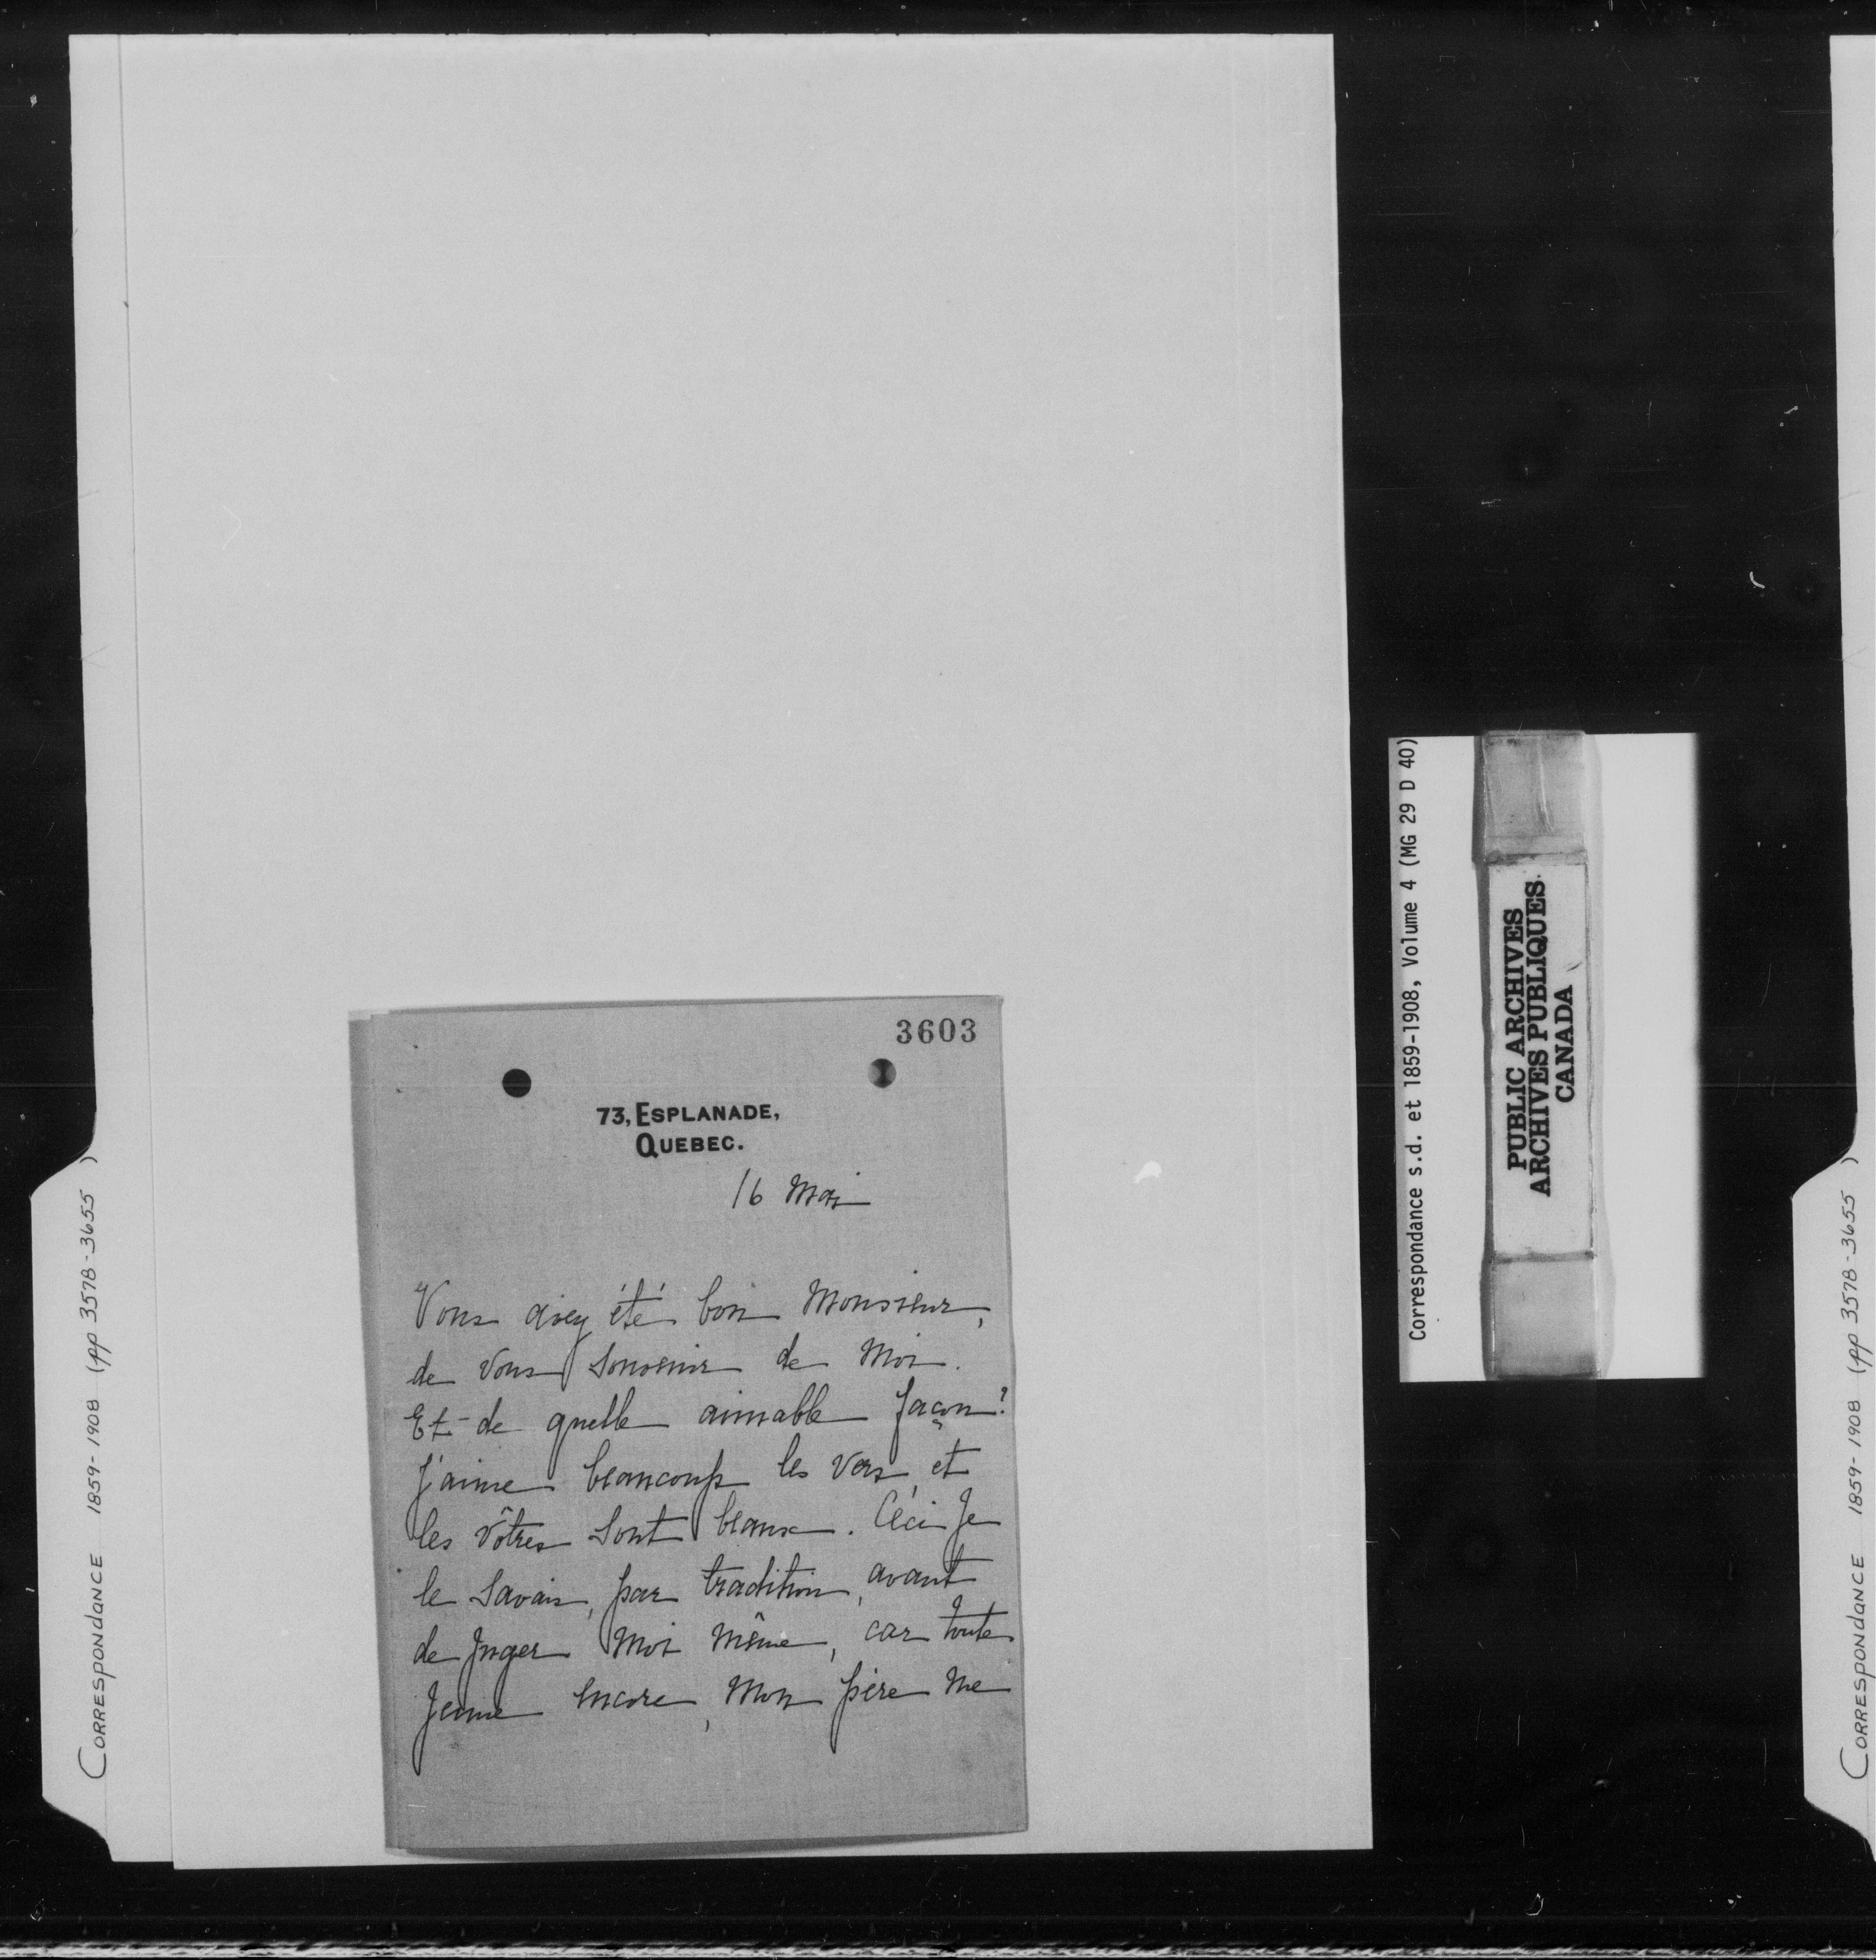 3603
73, ESPLANADE,
QUEBEC.
16 Mai
Vous avez été bon Monsieur,
de vous souvenir de moi.
Et de quelle aimable façon!
J'aime beaucoup les vers, et
les vôtres sont beaux. Céci je
le savais, par tradition, avant
de juger moi même, car toute
jeune encore, mon père me
CORRESPONDANCE 1859-1908 (pp 3578-3655)
Correspondance s.d. et 1859-1908, Volume 4 (MG 29 D 40)
PUBLIC ARCHIVES
ARCHIVES PUBLIQUES
CANADA
CORRESPONDANCE 1859-1908 (pp 3578-3655)